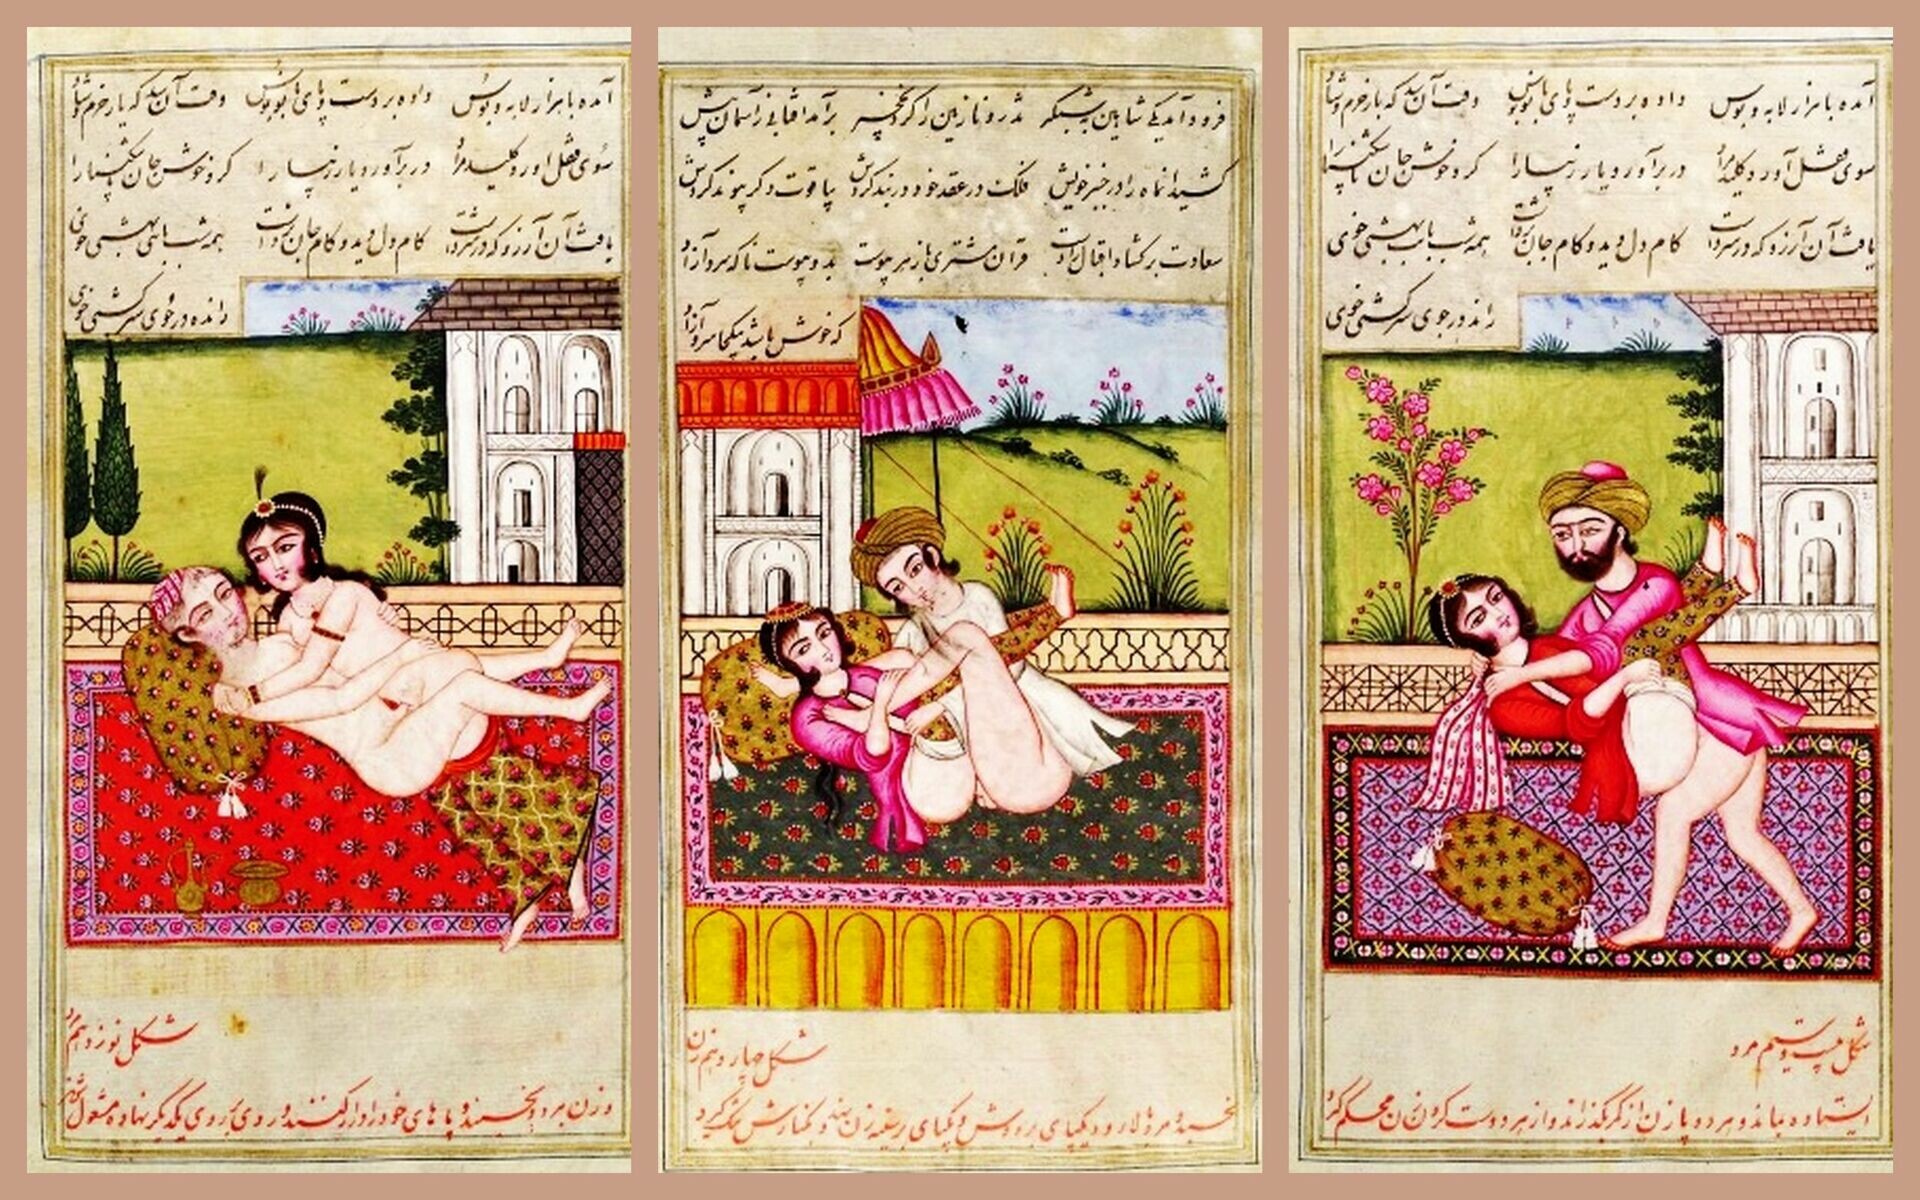 آمده با هزار لابه و بوس داده بر دست و پای وقت آن شد که یار خرم و شاد
سوی قفل آورد کلید مراد در برآورد یار زیبا را کرد خوش جان ناشکیبا را
یافت آن آرزو که در سر داشت کام دل دید و کام جان برداشت همه شب با بت بهشتی خوی
رانده در جوی سرکشی خوی
شکل نوزدهم
و زن مرد بخسبند و پا های خود را دراز کنند و روی بر روی یکدیگر نهاده مشغول شوند
فرود آمد یکی شاهین به شبگیر تذرو نازنین را کرد نخجیر برآمد آفتابی ز آسمان بیش
کشید آن ماه را در چنبر خویش فلک در عقد خود در بند کردش بیاقوت دگر پیوند کردش
سعادت برگشاد اقبال را دست قران مشتری با زهره پیوست بدو پیوست ناگه سرو آزاد
که خوش باشد بیکجا سرو آزاد
شکل چهاردهم زن
بخسبد و مرد بالا رود و یکپای بر دوش و یکپای بر زن نهد و بکنارش تنگ گیرد
آمده با هزار لابه و بوس داده بر دست و پای وقت آن شد که یار خرم و شاد
سوی قفل آورد کلید مراد در برآورد یار زیبا را کرد خوش جان ناشکیبا را
یافت آن آرزو که در سر داشت کام دل دید و کام جان برداشت همه شب با بت بهشتی خوی
رانده در جوی سرکشی خوی
شکل بیست و سیم مرد
ایستاده بماند و هر دو پا زن از کمر بگذراند و از هر دو دست گردن زن محکم گیرد